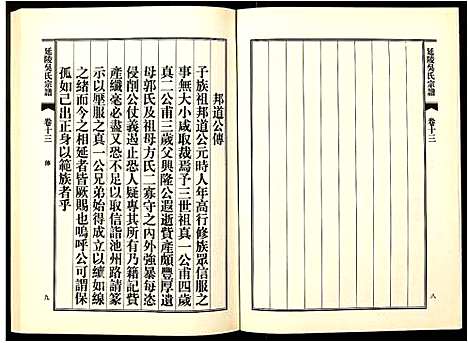 延陵吳氏宗譜
卷十三
八
邦道公傳
子族祖邦道公元時人年高行修族眾信服之
事無大小咸取裁焉予三世祖真一公甫四歲
真二公甫三歲父興隆公遐逝貲產頗豐其
母郭氏及祖母方氏二寡守之內外強暴每恣
侵削公仗義遏止恐人疑專其所有乃籍記貲
產纖毫必盡又恐不足以取信諧池州路請篆
示以壓服之真一公兄弟始得成立以纘如線
之緒而今之相延者皆厥賜也嗚呼公可謂能
孤如己出正身以範族者乎
延陵吳氏宗譜
卷十三
傳
九